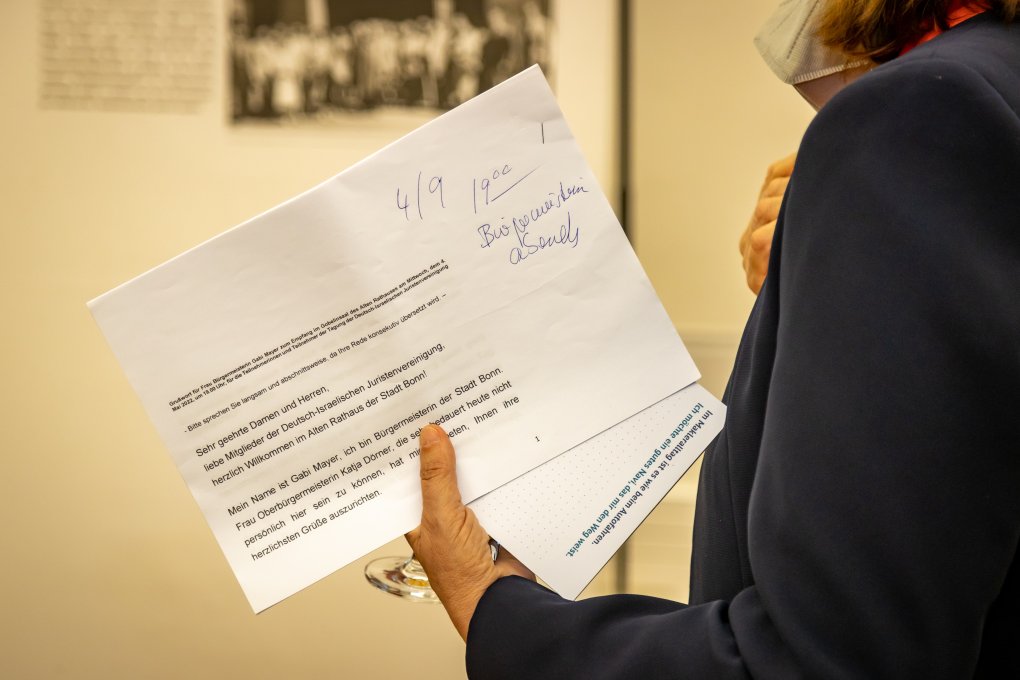 4/9 19⁰⁰
Bürgermeisterin
Grußwort für Frau Bürgermeisterin Gabi Mayer zum Empfang im Gobelinsaal des Alten Rathauses am Mittwoch, dem 4.
Mai 2022, um 19.00 Uhr, für die Teilnehmerinnen und Teilnehmer der Tagung der Deutsch-Israelischen Juristenvereinigung
- Bitte sprechen Sie langsam und abschnittsweise, da Ihre Rede konsekutiv übersetzt wird –
Sehr geehrte Damen und Herren,
liebe Mitglieder der Deutsch-Israelischen Juristenvereinigung,
herzlich Willkommen im Alten Rathaus der Stadt Bonn!
Mein Name ist Gabi Mayer, ich bin Bürgermeisterin der Stadt Bonn.
Frau Oberbürgermeisterin Katja Dörner, die bedauert heute nicht
persönlich hier sein zu können, hat Ihnen ihre
herzlichsten Grüße auszurichten.
Im Makleralltag ist es wie beim Autofahren.
Ich möchte ein gutes Navi, das mir den Weg weist.